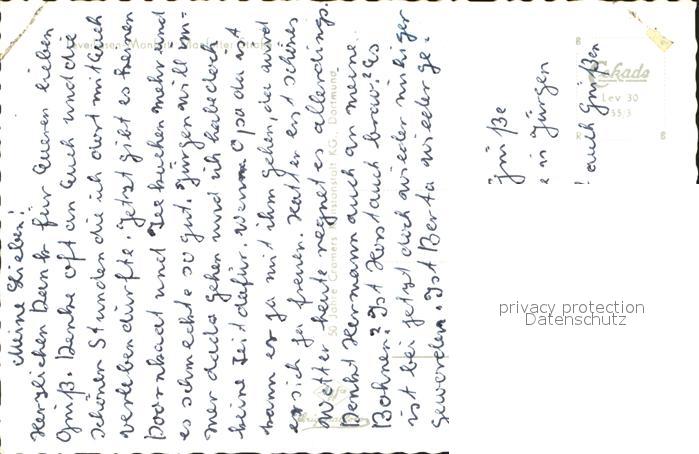 Meine Lieben!
Herzlichen Dank für Eueren lieben
Gruß. Denke oft an Euch und die
schönen Stunden die ich dort mit Euch
verleben durfte. Jetzt gibt es keinen
Doornkaat und Teekuchen mehr und
es schmeckte so gut. Jürgen will im-
mer dada gehen und ich habe doch
keine Zeit dafür. Wenn Opa da ist
kann er ja mit ihm gehen, da wird
er sich ja freuen. Hatten erst schönes
Wetter heute regnet es allerdings.
Denkt Hermann auch an meine
Bohnen? Ist Horst auch brav? Es
ist bei jetzt doch wieder ruhiger
geworden. Ist Berta wieder ge-
Grüße
e in Jürgen
! auch Grüßen
50 Jahre Cramers Kunstanstalt KG., Dortmund
Cekade
Lev 30
55/3
privacy protection
Datenschutz